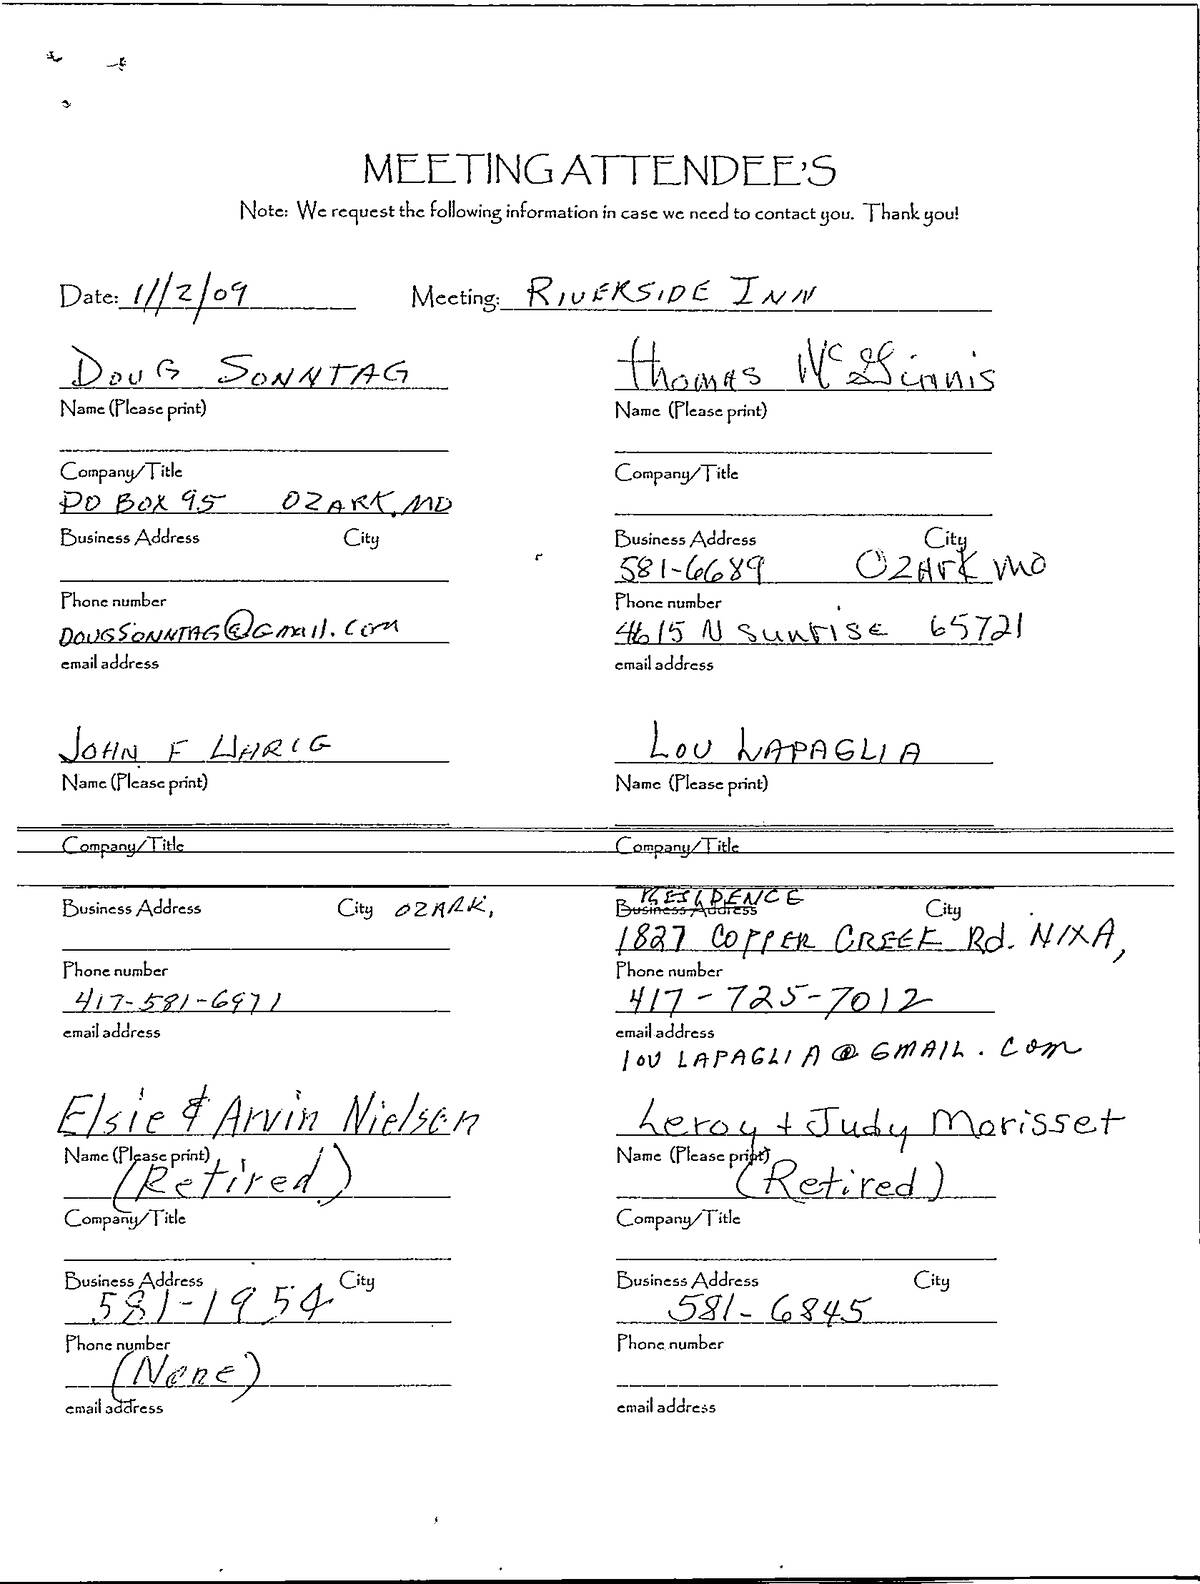 MEETING ATTENDEE'S
Note: We request the following information in case we need to contact you. Thank you!
Date: 11/2/09 Meeting: RIVERSIDE INN
DOUG SONNTAG
Name (Please print)
Company/Title
PO BOX 95 OZARK, MO
Business Address City
Phone number
DOUGSONNTAG@Gmail.com
email address
Thomas McGinnis
Name (Please print)
Company/Title
Business Address City
581-6689 OZArK MO
Phone number
4615 N Sunrise 65721
email address
JOHN F UHRIG
Name (Please print)
Company/Title
Business Address City OZARK,
Phone number
417-581-6971
email address
LOU LAPAGLIA
Name (Please print)
Company/Title
RESIDENCE
Business Address City
1827 COPPER CREEK Rd. NIXA,
Phone number
417-725-7012
email address
lOU LAPAGLIA@GMAIL.COM
Elsie & Arvin Nielsen
Name (Please print)
(Retired)
Company/Title
Business Address City
581-1954
Phone number
(None)
email address
Leroy + Judy Morisset
Name (Please print)
(Retired)
Company/Title
Business Address City
581-6845
Phone number
email address